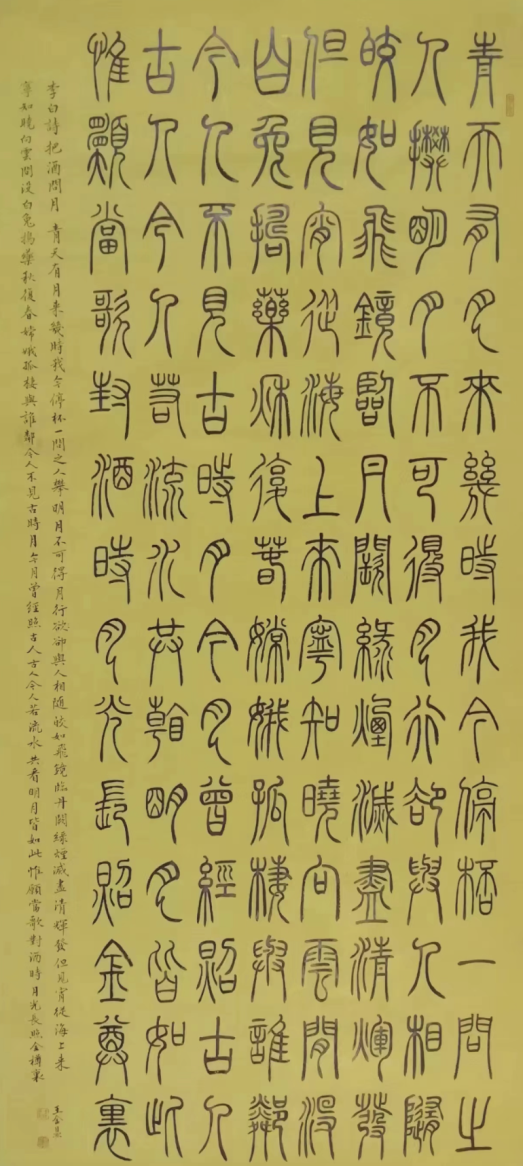 青天有月來幾時我今停桮一問之
人攀明月不可得月行卻與人相隨
皎如飛鏡臨丹闕綠煙滅盡清輝發
但見宵從海上來寧知曉向雲間沒
白兔搗藥秋復春嫦娥孤棲與誰鄰
今人不見古時月今月曾經照古人
古人今人若流水共看明月皆如此
惟願當歌對酒時月光長照金尊裏
李白詩把酒問月 青天有月來幾時我今停杯一問之人攀明月不可得月行欲卻與人相隨皎如飛鏡臨丹闕綠煙滅盡清輝發但見宵從海上來
寧知曉向雲間沒白兔搗藥秋復春嫦娥孤棲與誰鄰今人不見古時月今月曾經照古人古人今人若流水共看明月皆如此惟願當歌對酒時月光長照金樽裏